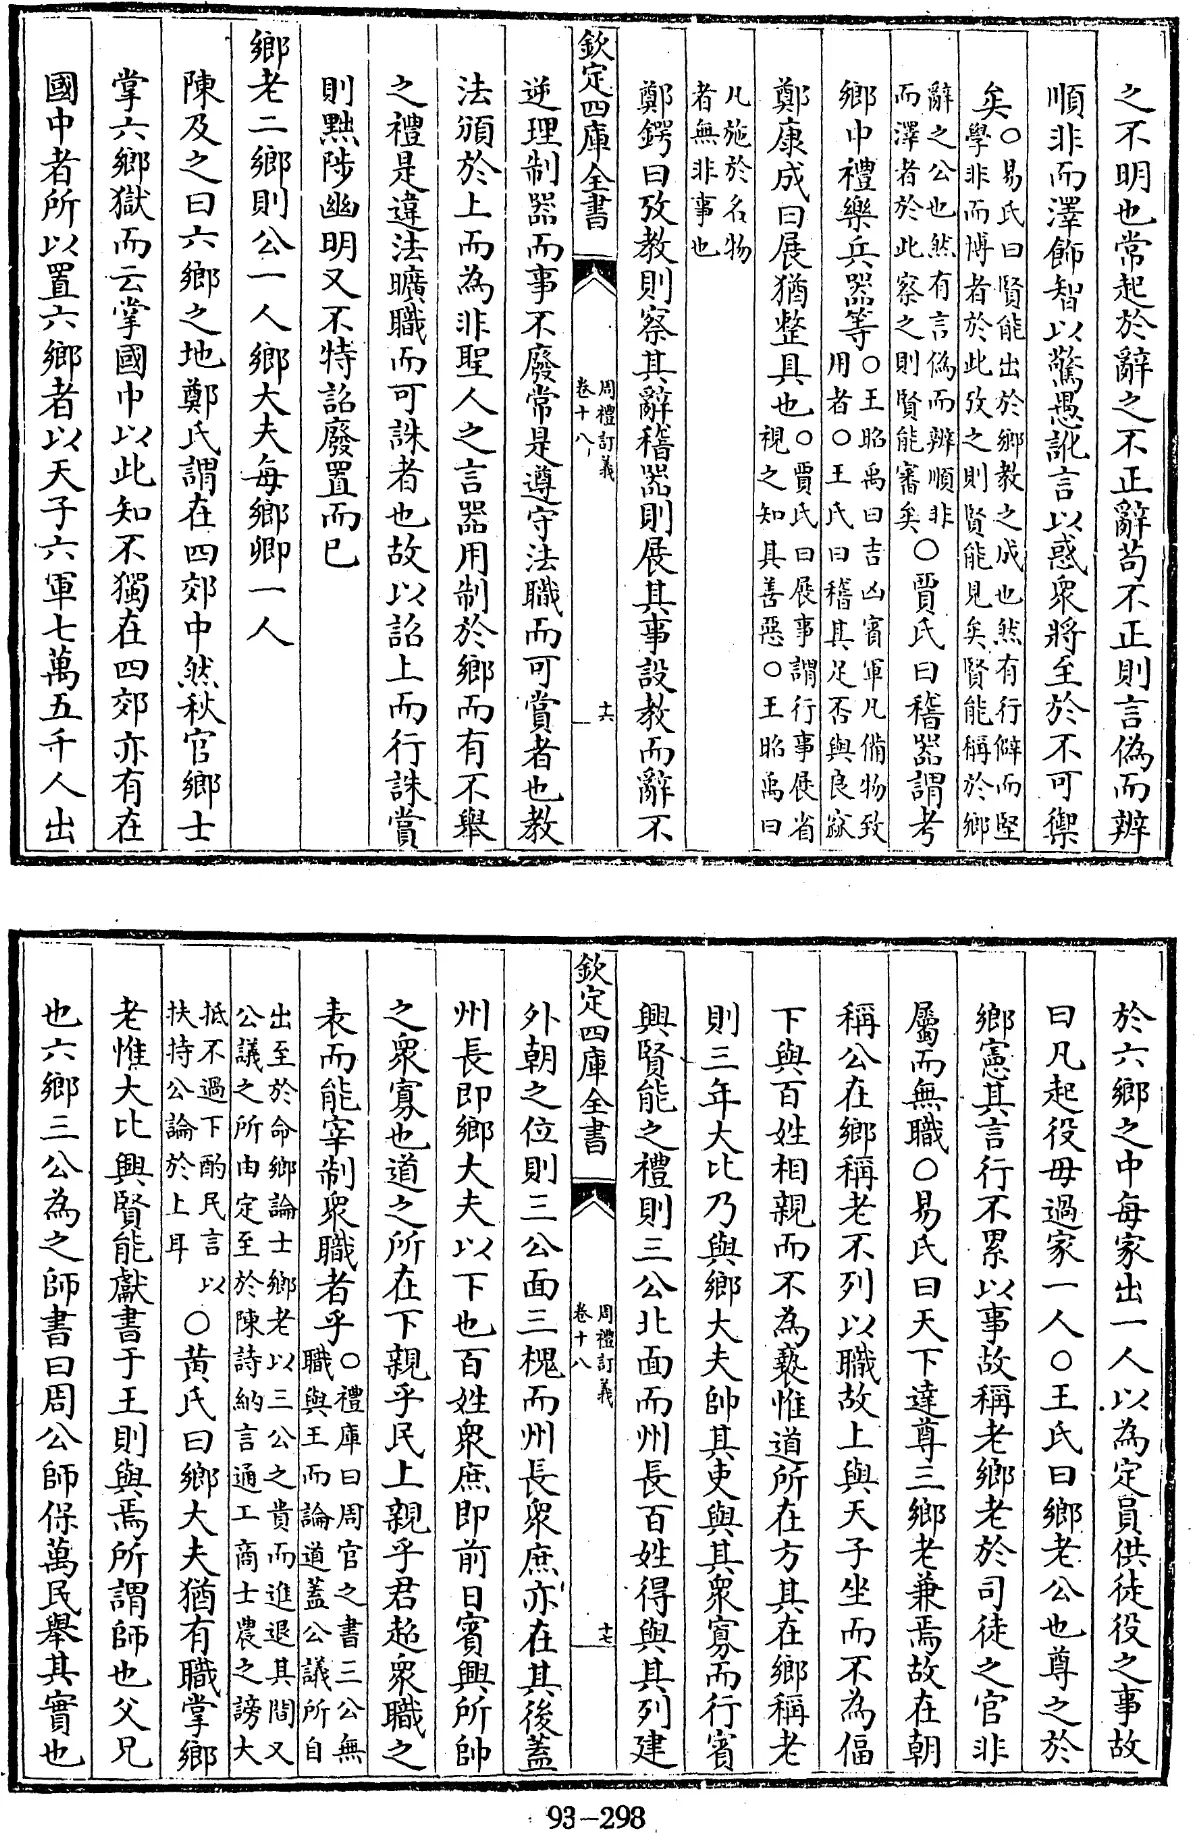 之不明也常起於辭之不正辭苟不正則言偽而辨
順非而澤飾智以驚愚訛言以惑衆將至於不可禦
矣○易氏曰賢能出於鄉教之成也然有行僻而堅
學非而博者於此攷之則賢能見矣賢能稱於鄉
辭之公也然有言偽而辨順非
而澤者於此察之則賢能審矣○賈氏曰稽器謂考
鄉中禮樂兵器等○王昭禹曰吉凶賓軍凡備物致
用者○王氏曰稽其足否與良窳
鄭康成曰展猶整具也○賈氏曰展事謂行事展省
視之知其善惡○王昭禹曰
凡施於名物
者無非事也
鄭鍔曰攷教則察其辭稽器則展其事設教而辭不
欽定四庫全書
周禮訂義
卷十八
十六
逆理制器而事不廢常是遵守法職而可賞者也教
法頒於上而為非聖人之言器用制於鄉而有不舉
之禮是違法曠職而可誅者也故以詔上而行誅賞
則黜陟幽明又不特詔廢置而已
鄉老二鄉則公一人鄉大夫每鄉卿一人
陳及之曰六鄉之地鄭氏謂在四郊中然秋官鄉士
掌六鄉獄而云掌國中以此知不獨在四郊亦有在
國中者所以置六鄉者以天子六軍七萬五千人出
於六鄉之中每家出一人以為定員供徒役之事故
曰凡起役毋過家一人○王氏曰鄉老公也尊之於
鄉憲其言行不累以事故稱老鄉老於司徒之官非
屬而無職○易氏曰天下達尊三鄉老兼焉故在朝
稱公在鄉稱老不列以職故上與天子坐而不為偪
下與百姓相親而不為褻惟道所在方其在鄉稱老
則三年大比乃與鄉大夫帥其吏與其衆寡而行賓
興賢能之禮則三公北面而州長百姓得與其列建
欽定四庫全書
周禮訂義
卷十八
十七
外朝之位則三公面三槐而州長衆庶亦在其後蓋
州長即鄉大夫以下也百姓衆庶即前日賓興所帥
之衆寡也道之所在下親乎民上親乎君超衆職之
表而能宰制衆職者乎○禮庫曰周官之書三公無
職與王而論道蓋公議所自
出至於命鄉論士鄉老以三公之貴而進退其間又
公議之所由定至於陳詩納言通工商士農之謗大
抵不過下酌民言以
扶持公論於上耳○黃氏曰鄉大夫猶有職掌鄉
老惟大比興賢能獻書于王則與焉所謂師也父兄
也六鄉三公為之師書曰周公師保萬民舉其實也
93-298